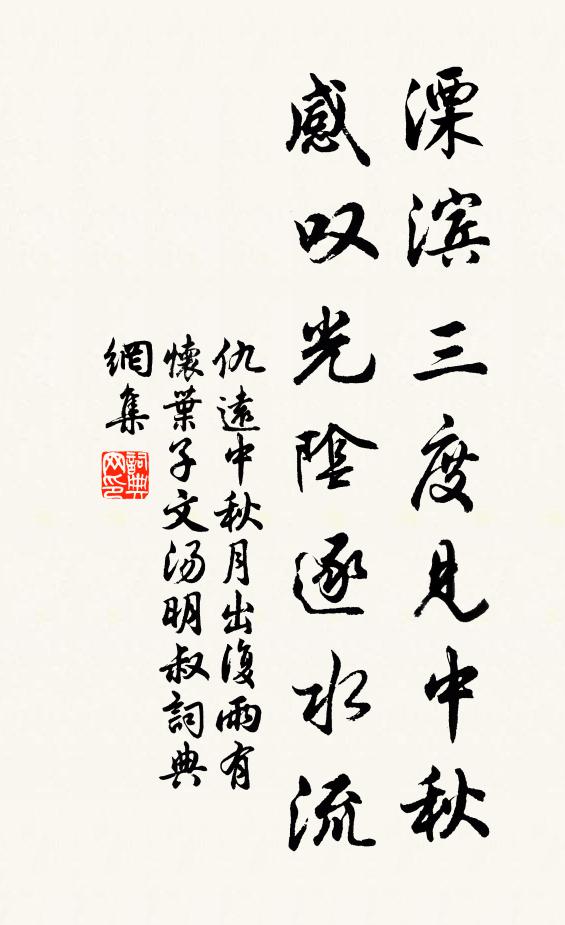 溧滨三度见中秋
感叹光陰逐水流
仇遠中秋月出復雨有
懷葉子文汤明叔詞典
網集
詞典网印